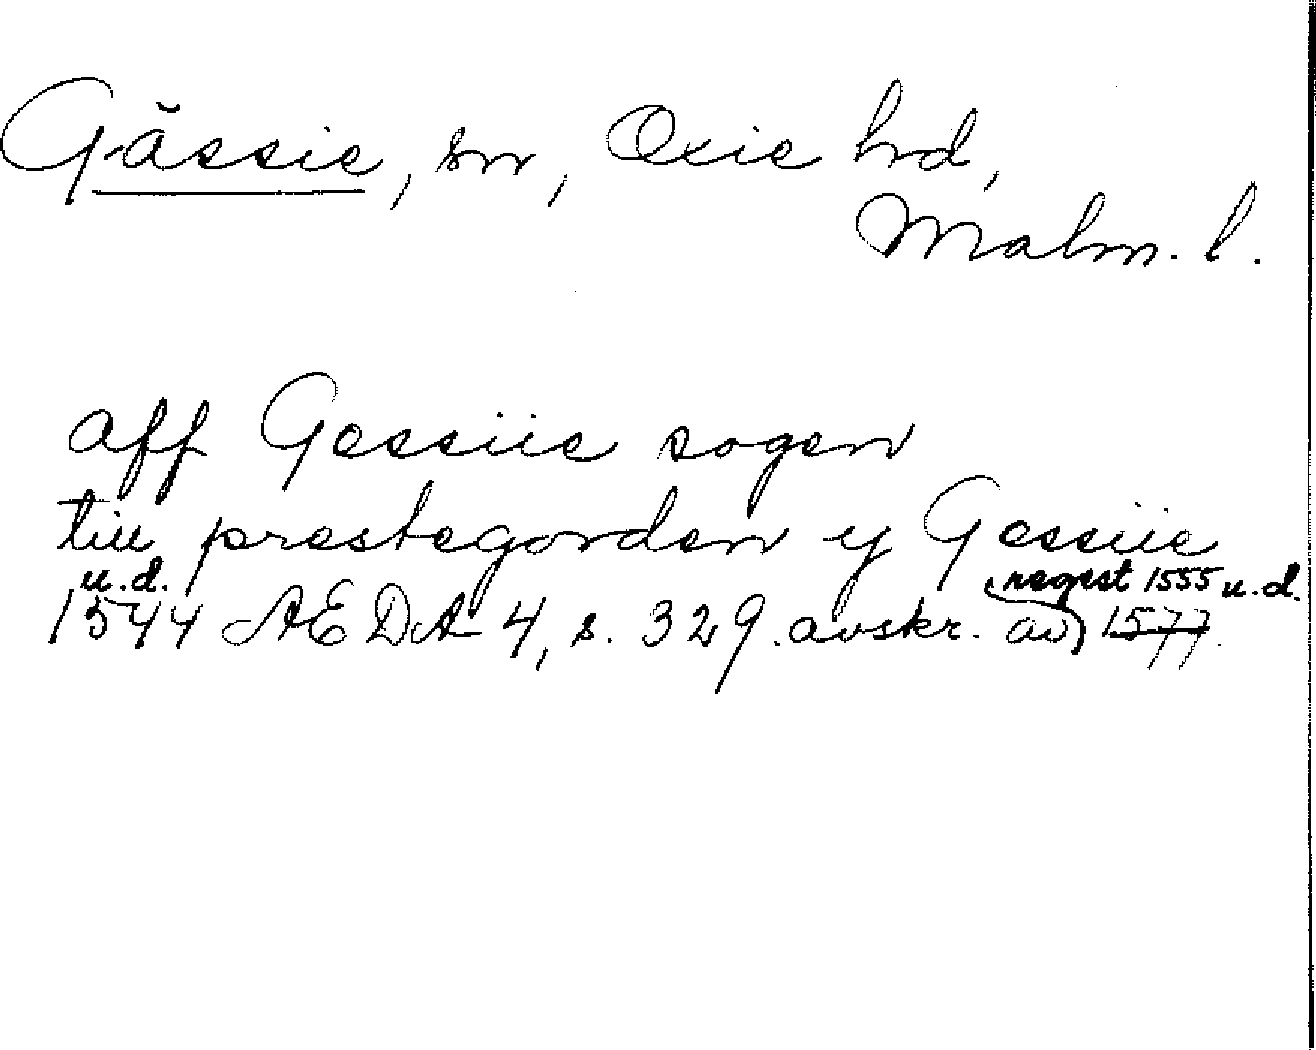 Gässie, sn, Oxie hd,
Malm. l.
aff Gessiie sogen
till prestegorden y Gessiie
u.d. regest 1555 u.d.
1544 AEDA 4, s. 329. avskr. av 1577.